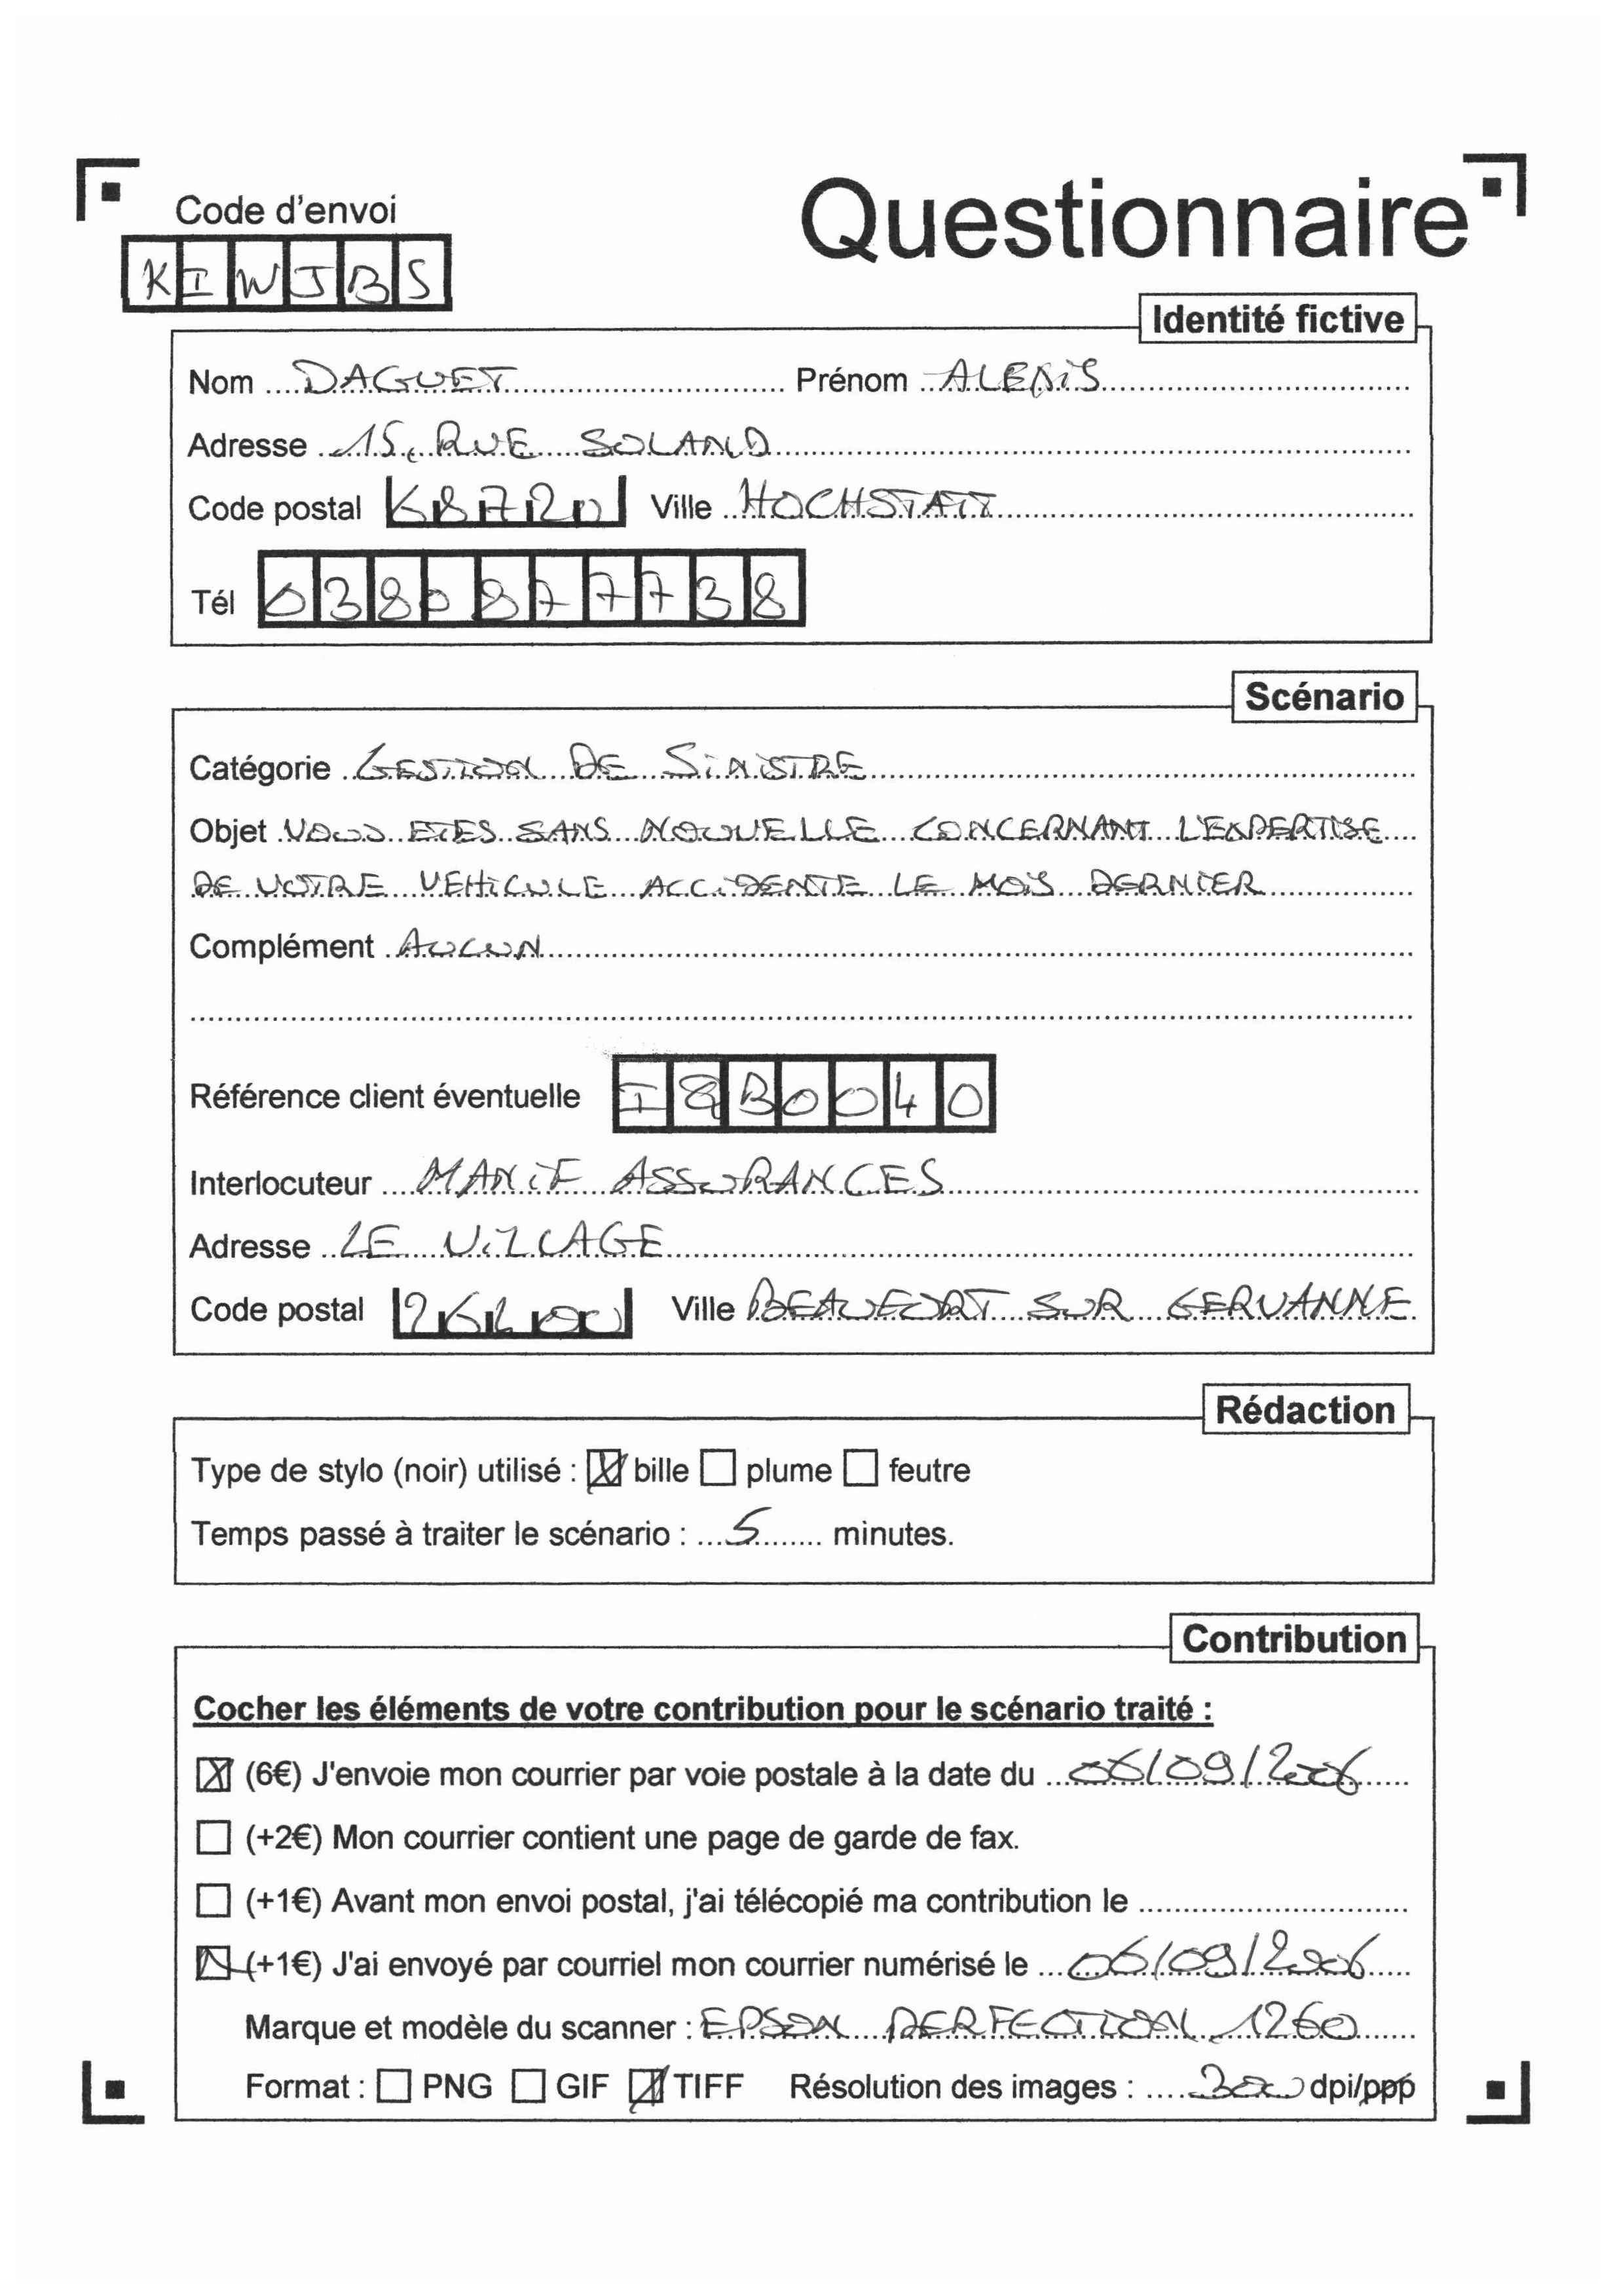 Code d'envoi
Questionnaire
KIWJBS
Identité fictive
Nom DAGUET Prénom ALEXIS
Adresse 15, RUE SOLAND
Code postal 68720 Ville HOCHSTATT
Tél 0380877738
Scénario
Catégorie GESTION DE SINISTRE
Objet VOUS ETES SANS NOUVELLE CONCERNANT L'EXPERTISE
DE VOTRE VEHICULE ACCIDENTE LE MOIS DERNIER
Complément AUCUN
Référence client éventuelle I8B0040
Interlocuteur MANIF ASSURANCES
Adresse LE VILLAGE
Code postal 26400 Ville BEAUFORT SUR GERVANNE
Rédaction
Type de stylo (noir) utilisé : bille plume feutre
Temps passé à traiter le scénario : 5 minutes.
Contribution
Cocher les éléments de votre contribution pour le scénario traité :
(6€) J'envoie mon courrier par voie postale à la date du 06/09/2006
(+2€) Mon courrier contient une page de garde de fax.
(+1€) Avant mon envoi postal, j'ai télécopié ma contribution le
(+1€) J'ai envoyé par courriel mon courrier numérisé le 06/09/2006
Marque et modèle du scanner : EPSON PERFECTION 1260
Format : PNG GIF TIFF Résolution des images : 300 dpi/ppp